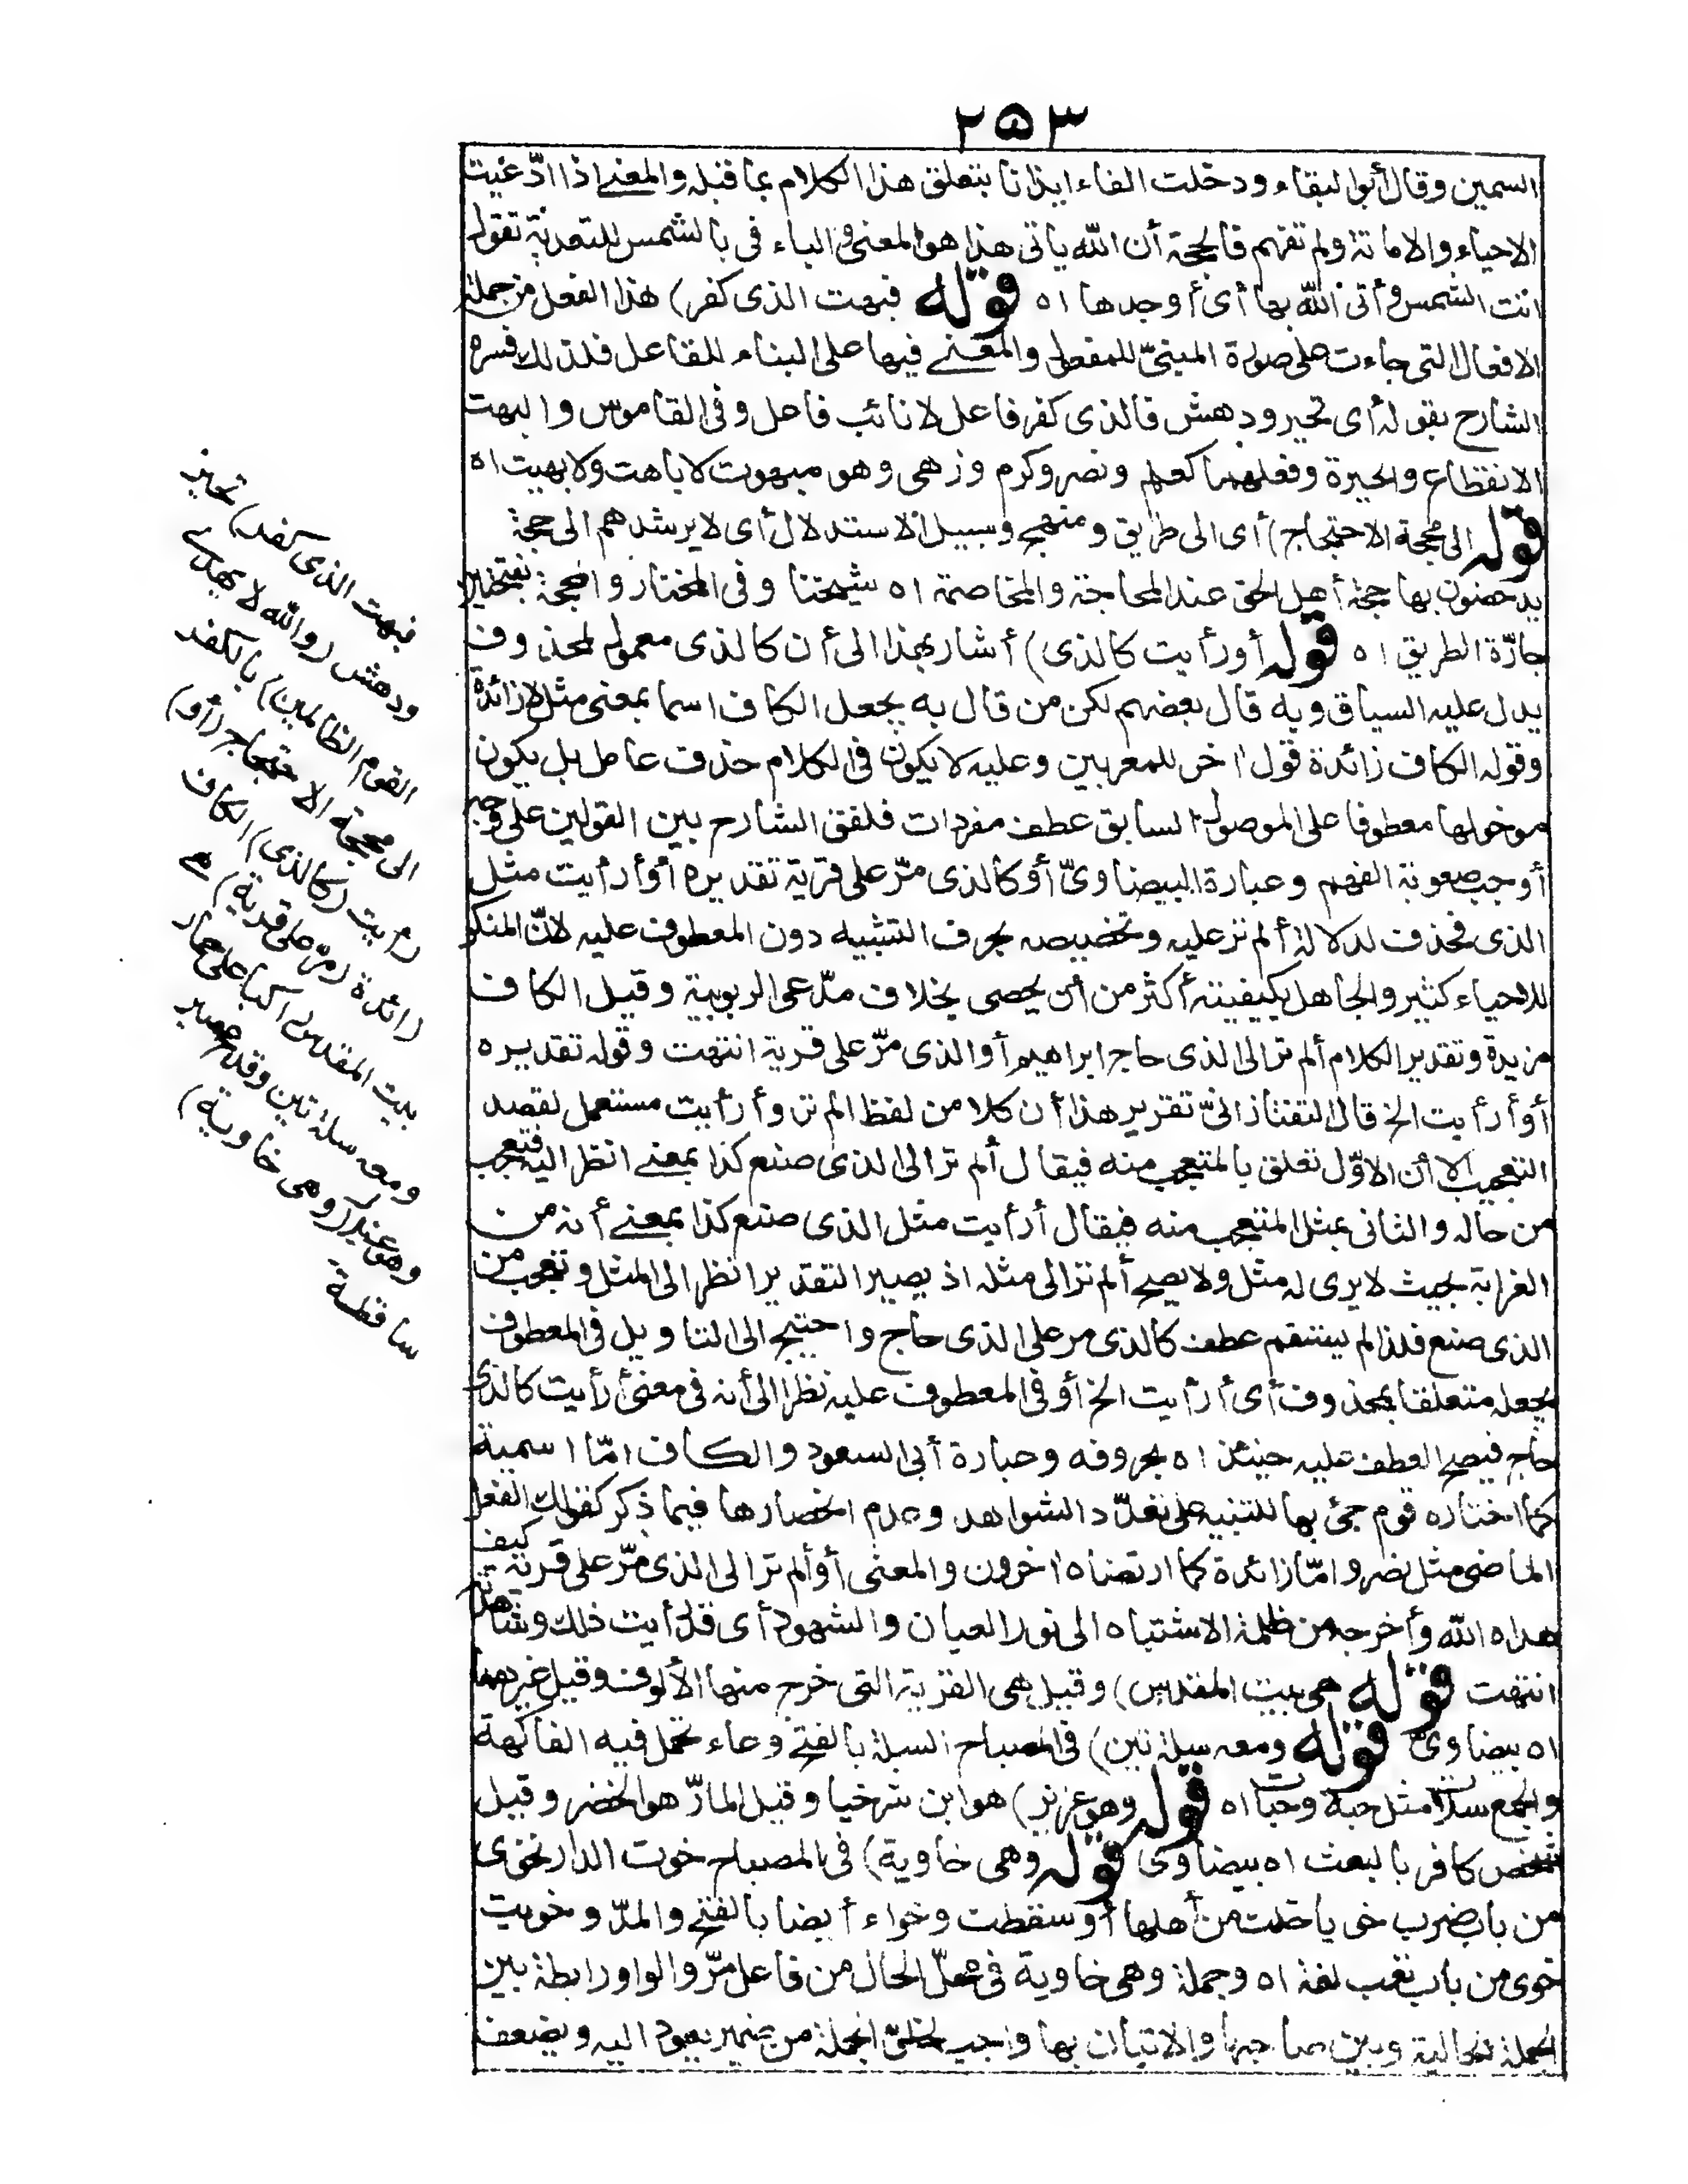 ٢٥٣
السمين وقال أبو البقاء ودخلت الفاء ايذانا بتعلق هذا الكلام بما قبله والمعنے اذا ادّعيت
الاحياء والاماتة ولم تفهم فالحجة أن الله ياتى هذا هو المعنى و الباء فى بالشمس للتعدية تقول
اتت الشمس وأتى الله بها أى أوجدها اه قوله فبهت الذى كفر) هذا الفعل من جملة
الافعال التى جاءت على صورة المبنىّ للمفعول والمعنے فيها على البناء للفاعل فلذلك فسره
الشارح بقوله أى تحير ودهش فالذى كفر فاعل لا نائب فاعل وفى القاموس والبهت
الانقطاع والحيرة وفعلهما كعلم ونصر وكرم وزهى وهو مبهوت لا باهت ولا بهيت اه
قوله الى محجة الاحتجاج) أى الى طريق ومنهج وسبيل الاستدلال أى لا يرشدهم الى حجة
يدحضون بها حجة أهل الحق عند المحاجة والمخاصمة اه شيخنا وفى المختار والمحجة بفتحتين
جادّة الطريق اه قوله أو رأيت كالذى) أشار بهذا الى أن كالذى معمول لمحذوف
يدل عليه السياق وبه قال بعضهم لكن من قال به يجعل الكاف اسما بمعنى مثل لا زائدة
وقوله الكاف زائدة قول اخر للمعربين وعليه لا يكون فى الكلام حذف عامل بل يكون
مدخولها معطوفا على الموصول السابق عطف مفردات فلفق الشارح بين القولين على وجه
أوجب صعوبة الفهم وعبارة البيضاوىّ أو كالذى مرّ على قرية تقديره أو أرأيت مثل
الذى فحذف لدلالة ألم تر عليه وتخصيصه بحرف التشبيه دون المعطوف عليه لانّ المنكر
للاحياء كثير والجاهل بكيفيته أكثر من أن يحصى بخلاف مدّعى الربوبية وقيل الكاف
مزيدة وتقدير الكلام ألم تر الى الذى حاج ابراهيم أو الذى مرّ على قرية انتهت وقوله تقديره
أو أرأيت الخ قال التفتازانىّ تقرير هذا أن كلا من لفظ الم تر وأرأيت مستعمل لقصد
التعجيب الا أن الاوّل تعلق بالمتعجب منه فيقال ألم تر الى الذى صنع كذا بمعنے انظر اليه فتعجب
من حاله والثانى بمثل المتعجب منه فيقال أرأيت مثل الذى صنع كذا بمعنے أنه من
الغرابة بحيث لا يرى له مثل ولا يصح ألم تر الى مثله اذ يصير التقدير انظر الى المثل وتعجب من
الذى صنع فلذا لم يستقم عطف كالذى مر على الذى حاج واحتيج الى التاويل فى المعطوف
بجعله متعلقا بمحذوف أى أرأيت الخ أو فى المعطوف عليه نظرا الى أنه فى معنى أرأيت كالذى
حاج فيصح العطف عليه حينئذ اه بحروفه وعبارة أبى السعود والكاف امّا اسمية
كما اختاره قوم جئ بها للتنبيه على تعدّد الشواهد وعدم انحصارها فيما ذكر كقولك الفعل
الماضى مثل نصر وامّا زائدة كما ارتضاه اخرون والمعنى أو ألم تر الى الذى مرّ على قرية كيف
هداه الله وأخرجه من ظلمة الاشتباه الى نور العيان والشهود أى قد رأيت ذلك وشاهدته
انتهت قوله هى بيت المقدس) وقيل هى القرية التى خرج منها الألوف وقيل غيرهما
اه بيضاوى قوله ومعه سلة تين) فى المصباح السلة بالفتح وعاء تحمل فيه الفاكهة
والجمع سلات مثل حبة وحبات اه قوله وهو عزير) هو ابن شرخيا وقيل المارّ هو الخضر وقيل
شخص كافر بالبعث اه بيضاوى قوله وهى خاوية) فى المصباح خوت الدار تخوى
من باب ضرب خويا خلت من أهلها أو سقطت وخواء أيضا بالفتح والمدّ وخويت
خوى من باب تعب لغة اه وجملة وهى خاوية فى محلّ الحال من فاعل مرّ والواو رابطة بين
الجملة الحالية وبين صاحبها والاتيان بها واجب لخلوّ الجملة من ضمير يعود اليه ويضعف
فبهت الذى كفر) تحير
ودهش (والله لا يهدے
القوم الظالمين) بالكفر
الى محجة الاحتجاج (أو)
رأيت (كالذى) الكاف
زائدة (مرّ على قرية) هے
بيت المقدس راكبا على حمار
ومعه سلة تين وقدح عصير
وهو عزير (وهى خاوية)
ساقطة